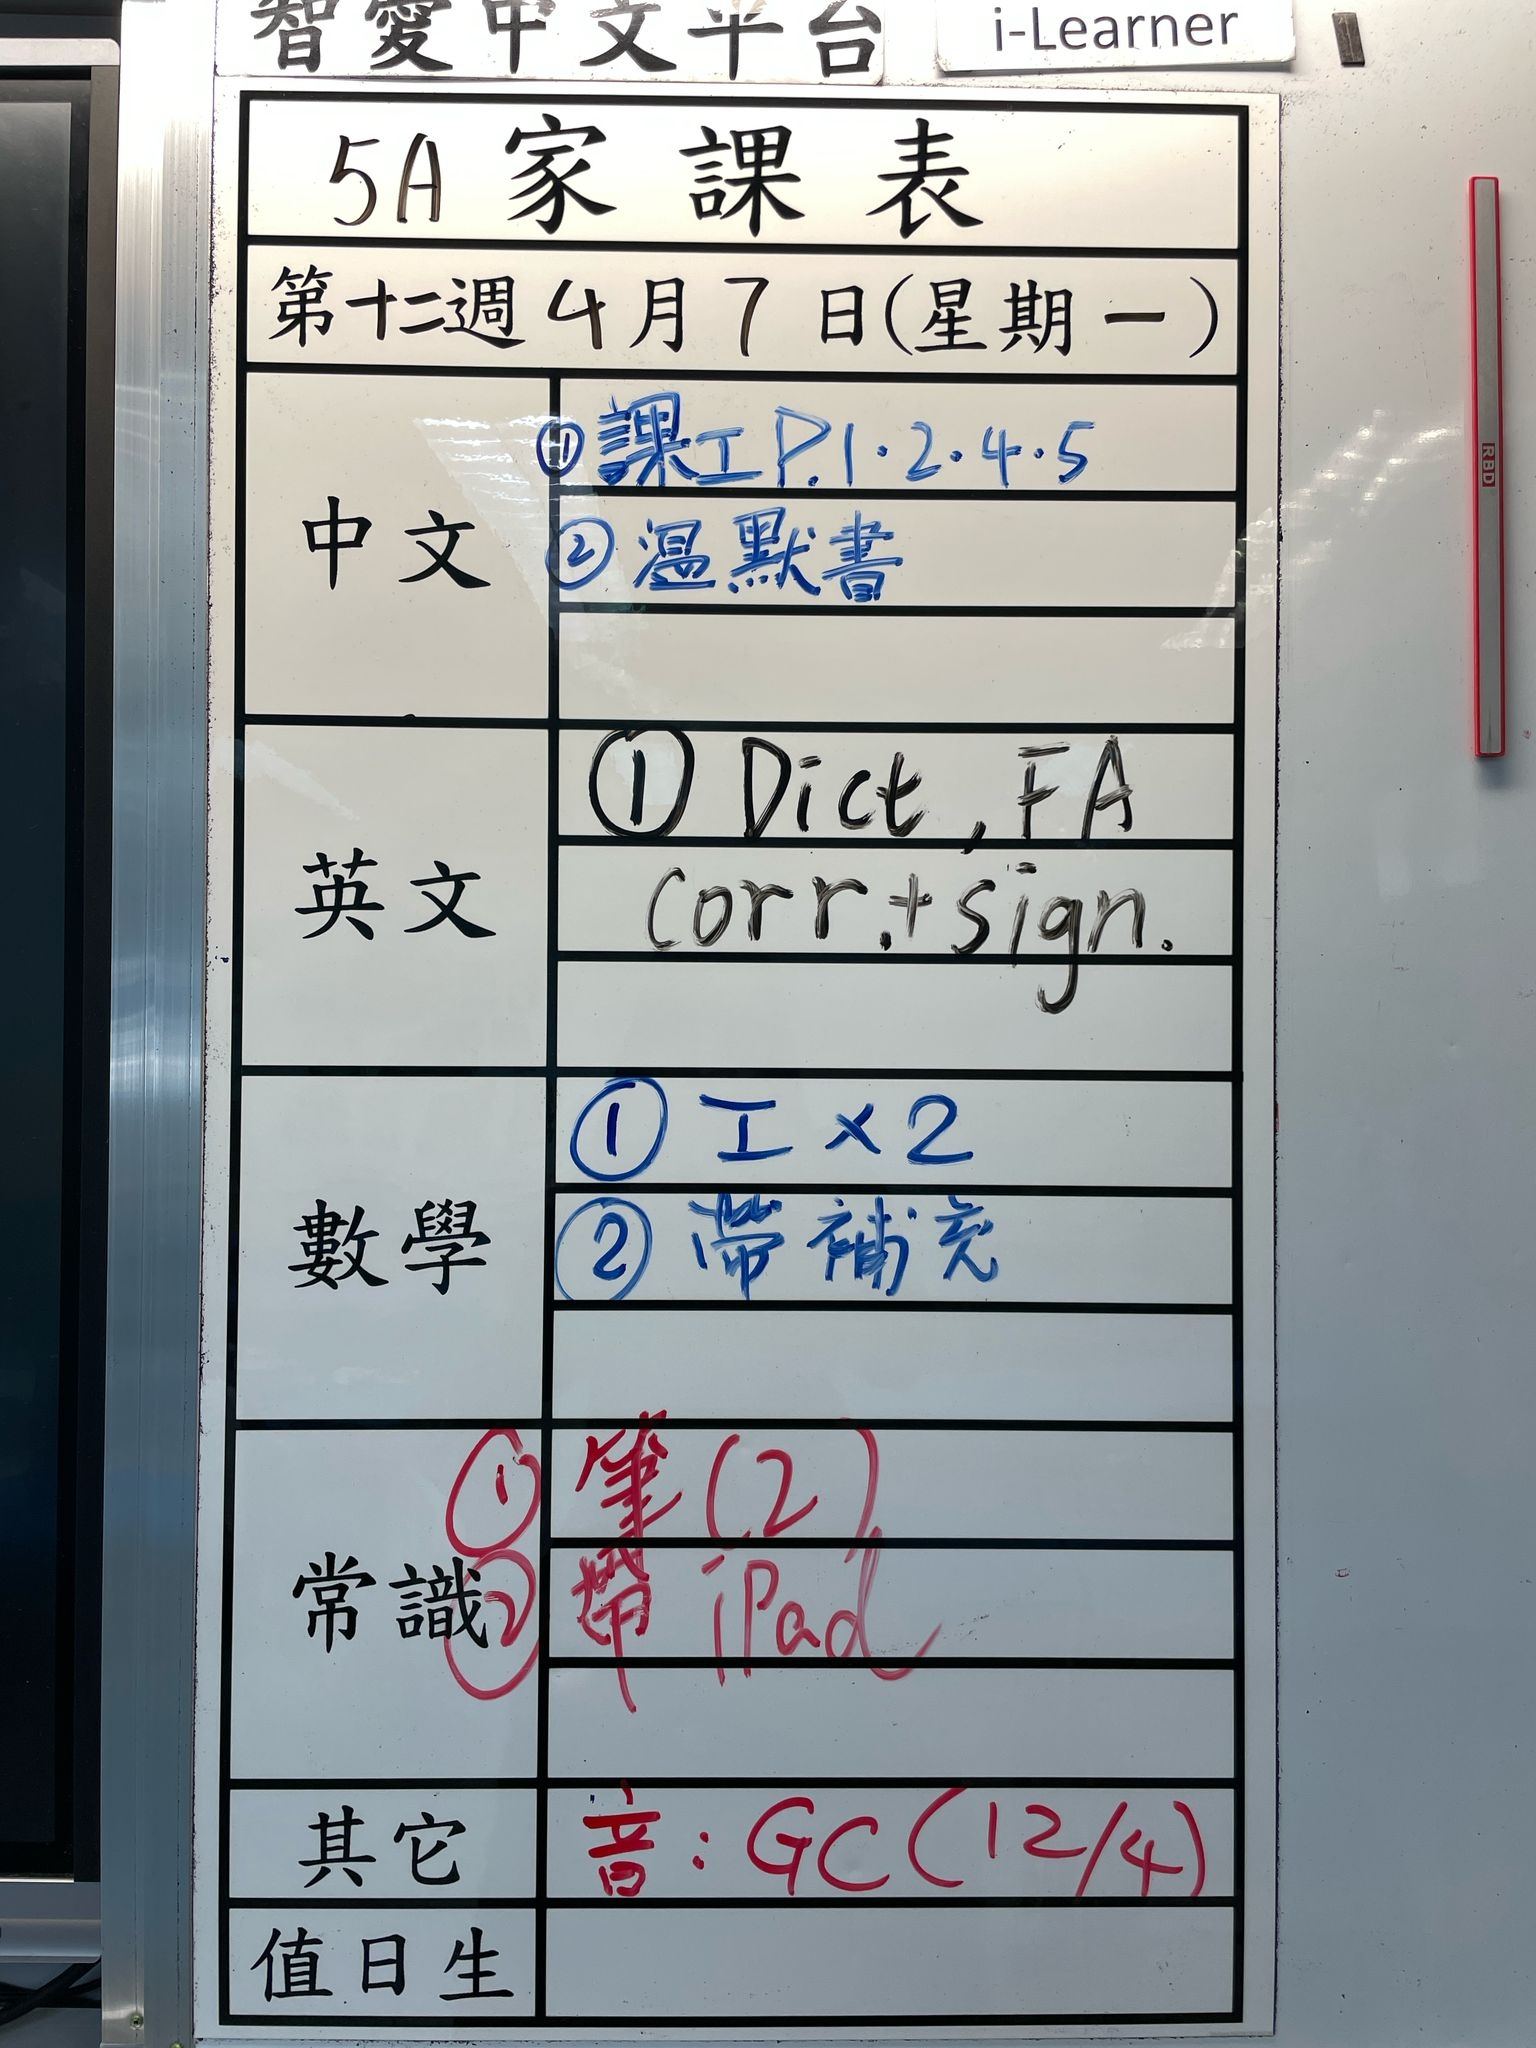 智愛中文平台
i-Learner
5A家課表
第十二週4月7日(星期一)
中文
①課工P.1·2·4·5
②溫默書
英文
①Dict, FA
corr.+sign.
數學
①工×2
②帶補充
常識
①筆(2)
②帶iPad
其它
音:GC(12/4)
值日生
RBD